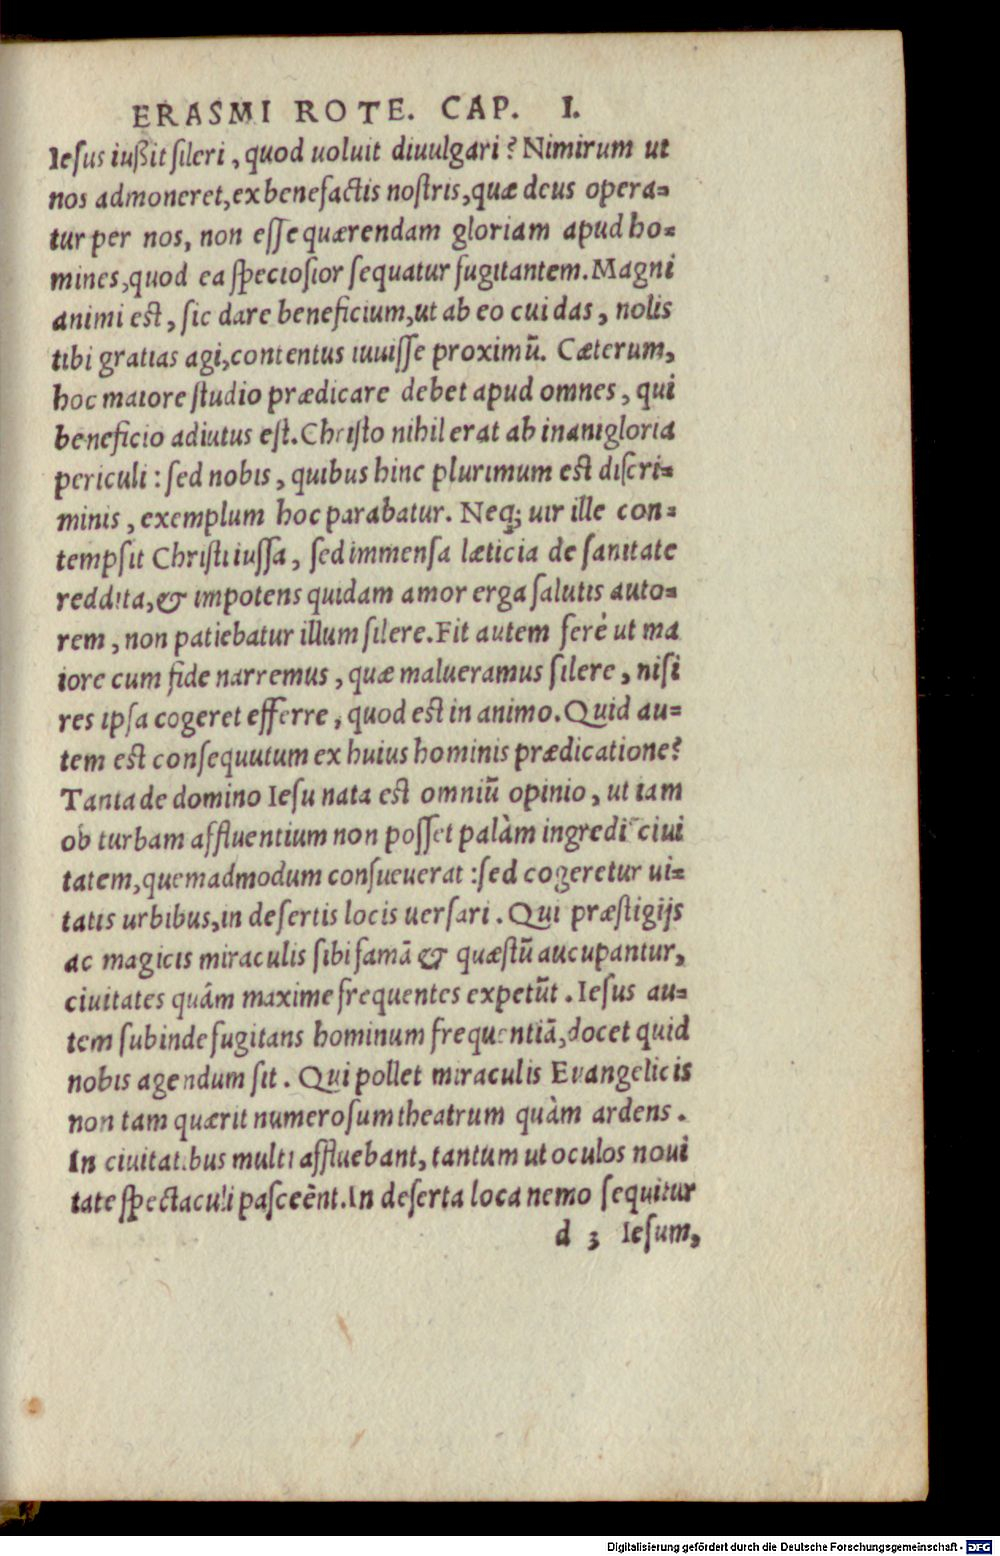 ERASMI ROTE. CAP. I.
Iesus iußit sileri, quod uoluit diuulgari? Nimirum ut
nos admoneret, ex benefactis nostris, quæ deus opera=
tur per nos, non esse quærendam gloriam apud ho=
mines, quod ea speciosior sequatur fugitantem. Magni
animi est, sic dare beneficium, ut ab eo cui das, nolis
tibi gratias agi, contentus iuuisse proximū. Cæterum,
hoc maiore studio prædicare debet apud omnes, qui
beneficio adiutus est. Christo nihil erat ab inani gloria
periculi: sed nobis, quibus hinc plurimum est discri=
minis, exemplum hoc parabatur. Neq; uir ille con=
tempsit Christi iussa, sed immensa læticia de sanitate
reddita, & impotens quidam amor erga salutis auto=
rem, non patiebatur illum silere. Fit autem ferè ut ma
iore cum fide narremus, quæ malueramus silere, nisi
res ipsa cogeret efferre, quod est in animo. Quid au=
tem est consequutum ex huius hominis prædicatione?
Tanta de domino Iesu nata est omniū opinio, ut iam
ob turbam affluentium non posset palàm ingredi ciui
tatem, quemadmodum consueuerat: sed cogeretur ui=
tatis urbibus, in desertis locis uersari. Qui præstigijs
ac magicis miraculis sibi famā & quæstū aucupantur,
ciuitates quâm maxime frequentes expetūt. Iesus au=
tem subinde fugitans hominum frequentiā, docet quid
nobis agendum sit. Qui pollet miraculis Euangelicis
non tam quærit numerosum theatrum quàm ardens.
In ciuitatibus multi affluebant, tantum ut oculos noui
tate spectaculi pasceēnt. In deserta loca nemo sequitur
d 3 Iesum,
Digitalisierung gefördert durch die Deutsche Forschungsgemeinschaft - DFG